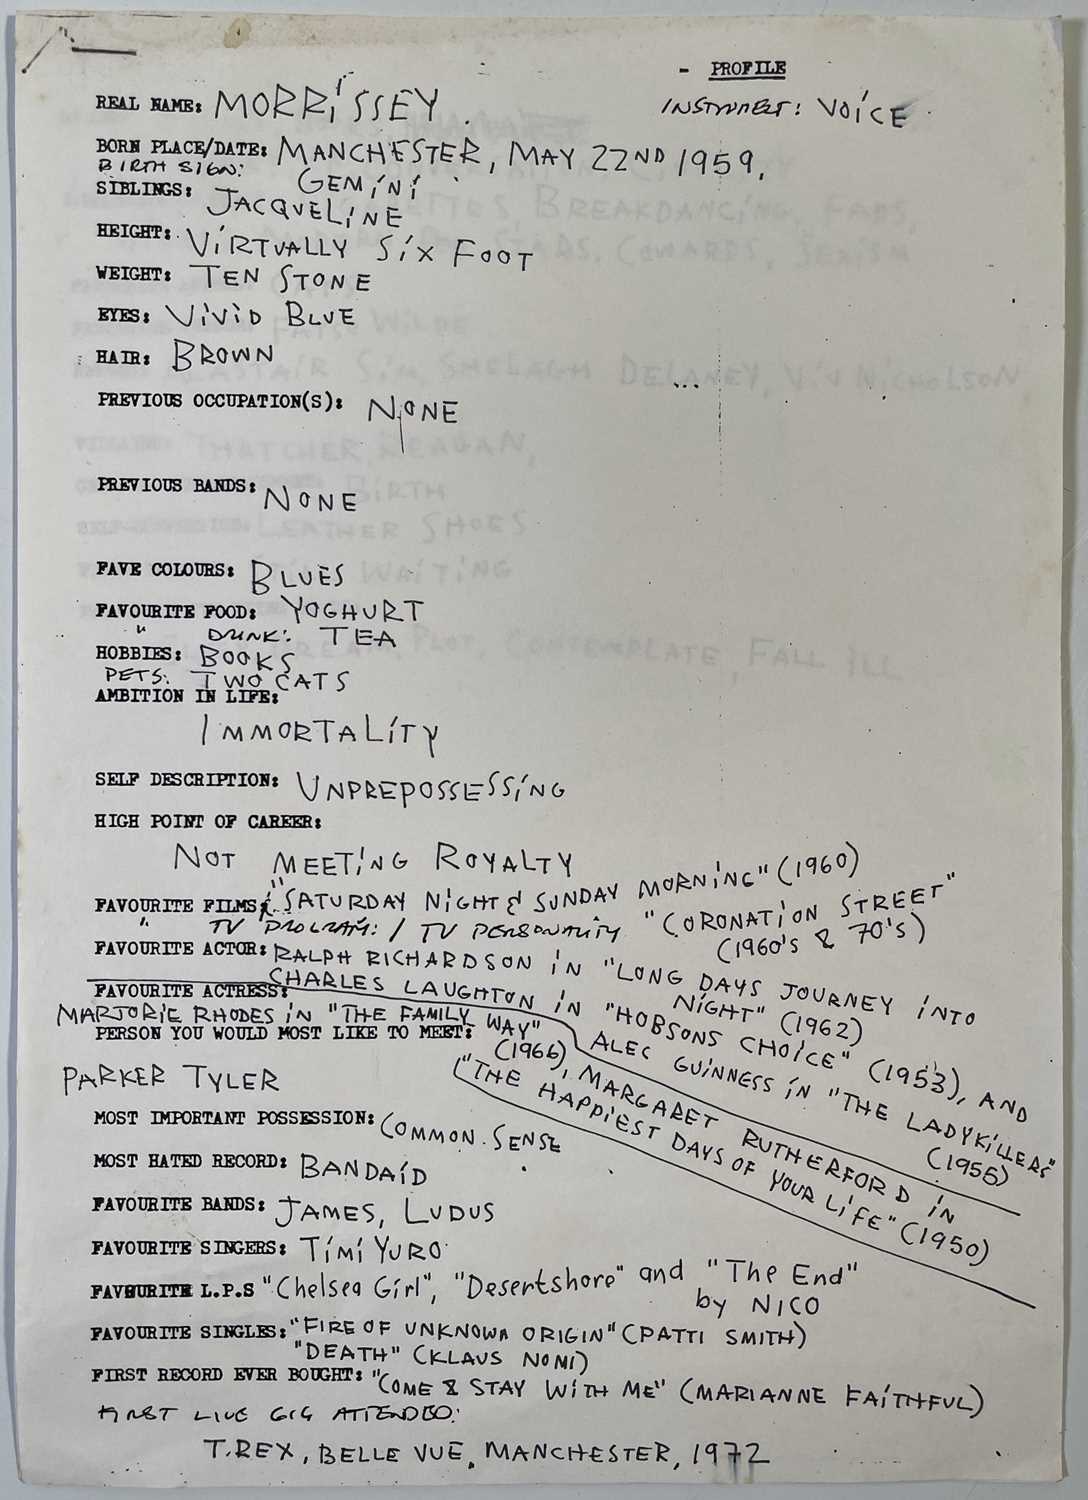 - PROFILE
REAL NAME: MORRISSEY.
INSTRUMENT: VOICE
BORN PLACE/DATE: MANCHESTER, MAY 22ND 1959.
BIRTH SIGN: GEMINI
SIBLINGS: JACQUELINE
HEIGHT: VIRTUALLY SIX FOOT
WEIGHT: TEN STONE
EYES: VIVID BLUE
HAIR: BROWN
PREVIOUS OCCUPATION(S): NONE
PREVIOUS BANDS: NONE
FAVE COLOURS: BLUES
FAVOURITE FOOD: YOGHURT
" DRINK: TEA
HOBBIES: BOOKS
PETS: TWO CATS
AMBITION IN LIFE:
IMMORTALITY
SELF DESCRIPTION: UNPREPOSSESSING
HIGH POINT OF CAREER:
NOT MEETING ROYALTY
FAVOURITE FILMS: "SATURDAY NIGHT & SUNDAY MORNING" (1960)
" TV PROGRAM: / TV PERSONALITY "CORONATION STREET"
(1960'S & 70'S)
FAVOURITE ACTOR: RALPH RICHARDSON IN "LONG DAYS JOURNEY INTO
NIGHT" (1962)
CHARLES LAUGHTON IN "HOBSONS CHOICE" (1953), AND
ALEC GUINNESS IN "THE LADYKILLERS"
(1955)
FAVOURITE ACTRESS:
MARJORIE RHODES IN "THE FAMILY WAY"
(1966), MARGARET RUTHERFORD IN
"THE HAPPIEST DAYS OF YOUR LIFE" (1950)
PERSON YOU WOULD MOST LIKE TO MEET:
PARKER TYLER
MOST IMPORTANT POSSESSION: COMMON.SENSE
MOST HATED RECORD: BANDAID
FAVOURITE BANDS: JAMES, LUDUS
FAVOURITE SINGERS: TIMI YURO
FAVOURITE L.P.S "Chelsea Girl", "Desertshore" and "The End"
by NICO
FAVOURITE SINGLES: "FIRE OF UNKNOWN ORIGIN" (PATTI SMITH)
"DEATH" (KLAUS NOMI)
FIRST RECORD EVER BOUGHT: "COME & STAY WITH ME" (MARIANNE FAITHFUL)
FIRST LIVE GIG ATTENDED:
T.REX, BELLE VUE, MANCHESTER, 1972
BREAKDANCING, FADS,
COWARDS, SEXISM
WILDE
ALASTAIR SIM, SHELAGH DELANEY, VIV NICHOLSON
THATCHER, REAGAN,
BIRTH
LEATHER SHOES
WAITING
DREAM, PLOT, CONTEMPLATE, FALL ILL